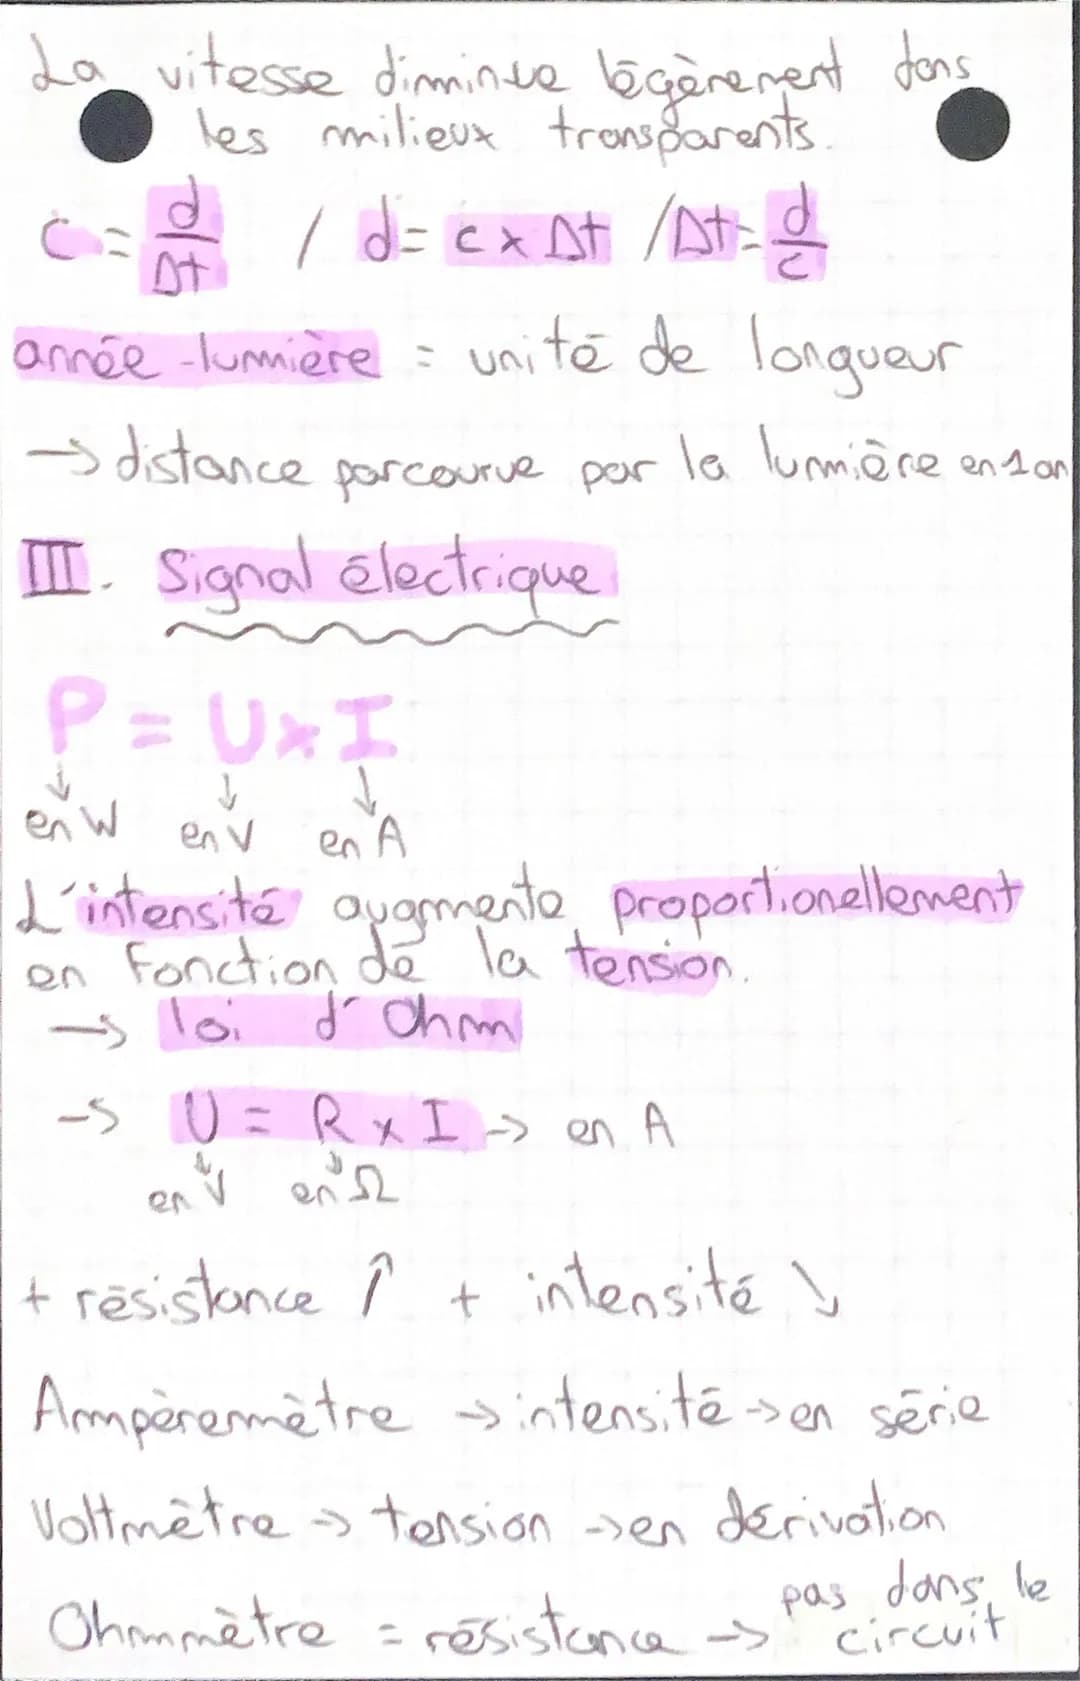 La vitesse diminue légèrement dans
les milieux transparents.
c = d/Δt / d = c x Δt / Δt = d/c
année-lumière = unité de longueur
→ distance parcourue par la lumière en 1 an
III. Signal électrique
P = U x I
↓ ↓ ↓
en W en V en A
L'intensité augmente proportionellement
en fonction de la tension.
→ loi d'Ohm
→ U = R x I → en A
en V en Ω
+ résistance ↑ + intensité ↓
Ampèremètre → intensité → en série
Voltmètre → tension → en dérivation
Ohmmètre = résistance → pas dans le
circuit